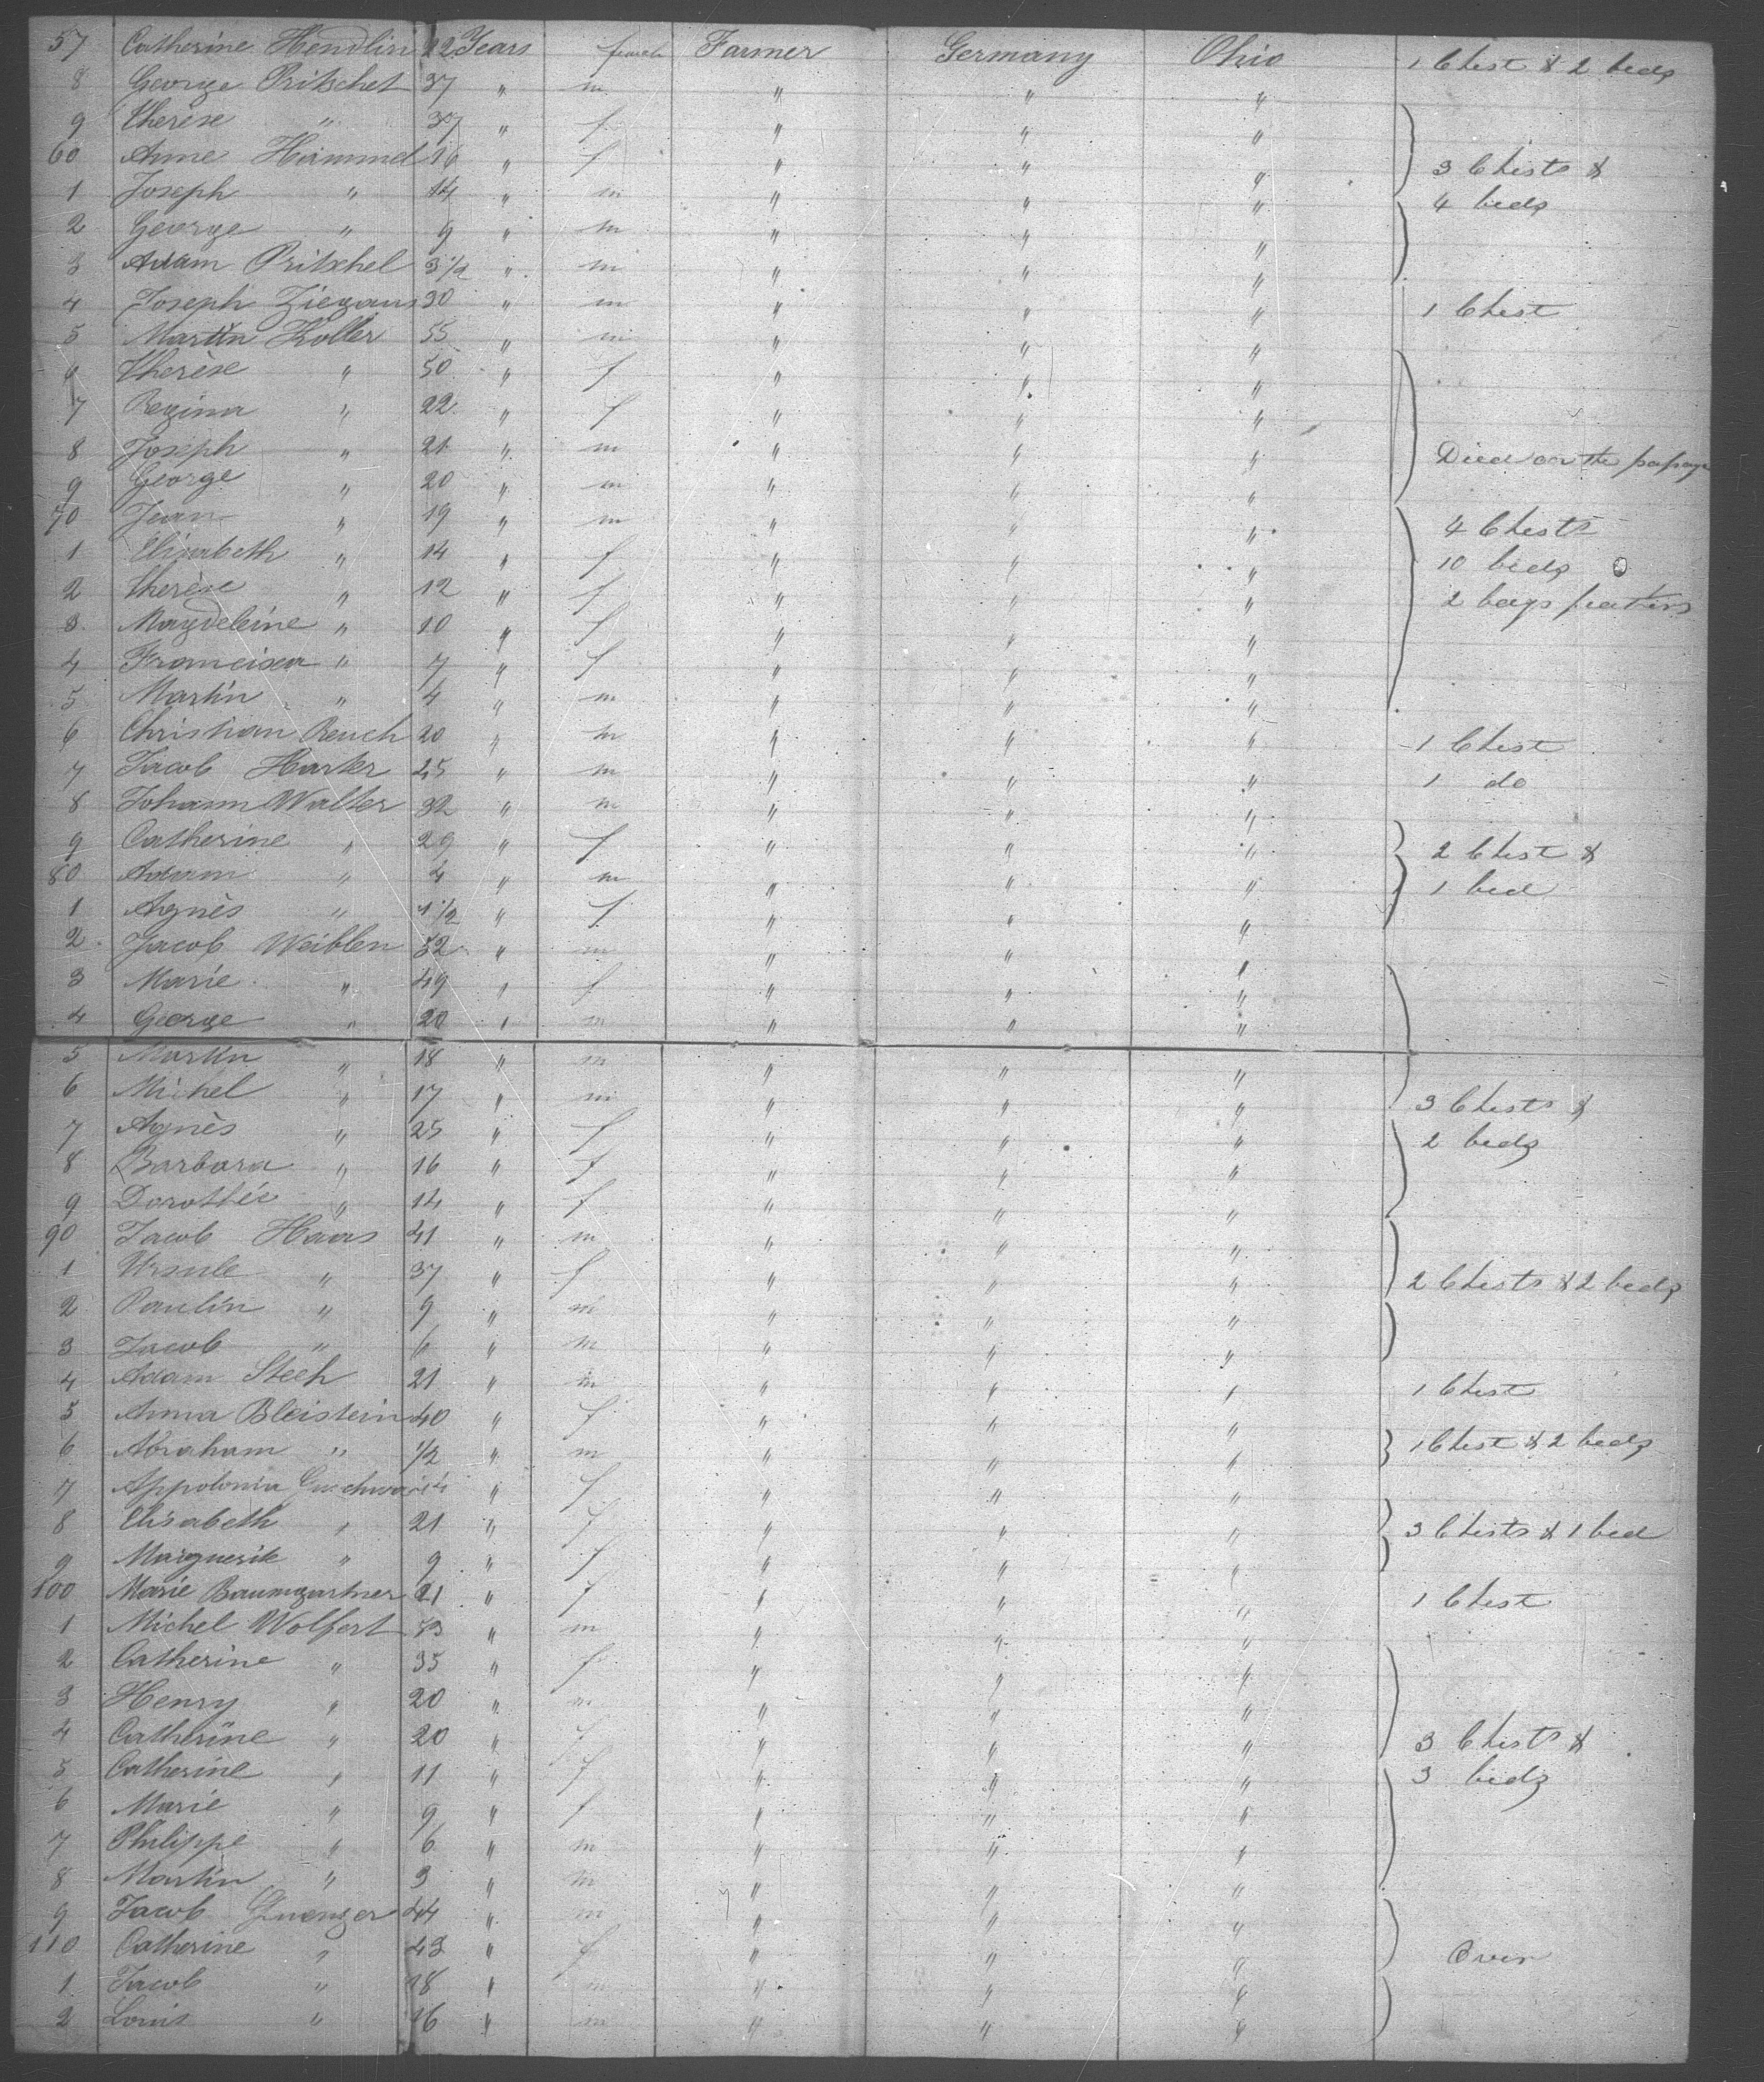 57 Catherine Hendlin 22 Years female Farmer Germany Ohio 1 Chest & 2 beds
8 George Pritschet 37 " m " " "
9 Therèse " 37 " f " " "
60 Anne Hammel 16 " f " " " 3 Chests &
1 Joseph " 14 " m " " " 4 beds
2 George " 9 " m " " "
3 Adam Pritschel 3 1/2 " m " " "
4 Joseph Ziegaus 30 " m " " " 1 Chest
5 Martin Koller 55 " m " " "
6 Therèse " 50 " f " " "
7 Regina " 22 " f " " "
8 Joseph " 21 " m " " " Died on the passage
9 George " 20 " m " " "
70 Jean " 19 " m " " " 4 Chests
1 Elisabeth " 14 " f " " " 10 beds
2 Therèse " 12 " f " " " 2 bags feathers
3 Magdeleine " 10 " f " " "
4 Francisca " 7 " f " " "
5 Martin " 4 " m " " "
6 Christian Reuch 20 " m " " " 1 Chest
7 Jacob Harter 25 " m " " " 1 do
8 Johann Walter 32 " m " " "
9 Catherine " 29 " f " " " 2 Chest &
80 Adam " 4 " m " " " 1 bed
1 Agnès " 1 1/2 " f " " "
2 Jacob Weiblen 52 " m " " "
3 Marie " 49 " f " " "
4 George " 20 " m " " "
5 Martin " 18 " m " " "
6 Michel " 17 " m " " " 3 Chests &
7 Agnès " 25 " f " " " 2 beds
8 Barbara " 16 " f " " "
9 Dorothée " 14 " f " " "
90 Jacob Haas 41 " m " " "
1 Ursule " 37 " f " " " 2 Chests & 2 beds
2 Paulin " 9 " m " " "
3 Jacob " 6 " m " " "
4 Adam Stech 21 " m " " " 1 Chest
5 Anna Bleistein 40 " f " " "
6 Abraham " 1/2 " m " " " 1 Chest & 2 beds
7 Appolonia " f " " "
8 Elisabeth " 21 " f " " " 3 Chests & 1 bed
9 Marguerite " 9 " f " " "
100 Marie Baumgartner 21 " f " " " 1 Chest
1 Michel Wolfert 53 " m " " "
2 Catherine " 35 " f " " "
3 Henry " 20 " m " " "
4 Catherine " 20 " f " " " 3 Chests &
5 Catherine " 11 " f " " " 3 beds
6 Marie " 9 " f " " "
7 Philippe " 6 " m " " "
8 Martin " 3 " m " " "
9 Jacob 44 " m " " "
110 Catherine " 43 " f " " " Over
1 Jacob " 18 " m " " "
2 Louis " 16 " m " " "